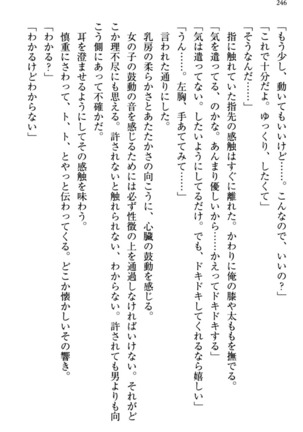 246
「もう少し、動いてもいいけど……。こんなので、いいの？」
「これで十分だよ。ゆっくり、したくて」
「そうなんだ……」
指に触れていた指先の感触はすぐに離れた。かわりに俺の膝や太ももを撫でる。
「気を遣ってる、のかな。あんまり優しいから……かえってドキドキする」
「気は遣ってない。したいようにしてるだけ。でも、ドキドキしてくれるなら嬉しい」
「うん……。左胸、手あててみて……」
言われた通りにした。
乳房の柔らかさとあたたかさの向こうに、心臓の鼓動を感じる。
女の子の鼓動の音を感じるためには必ず性徴の上を通過しなければいけない。それがど
こか理不尽にも思える。許されないと触れられない、わからない。許されても男よりも向
こう側にあって不確かだ。
耳を澄ませるようにしてその感触を味わう。
慎重にさわって、ト、ト、とやっと伝わってくる。どこか懐かしいその響き。
「わかる？」
「わかるけどわからない」